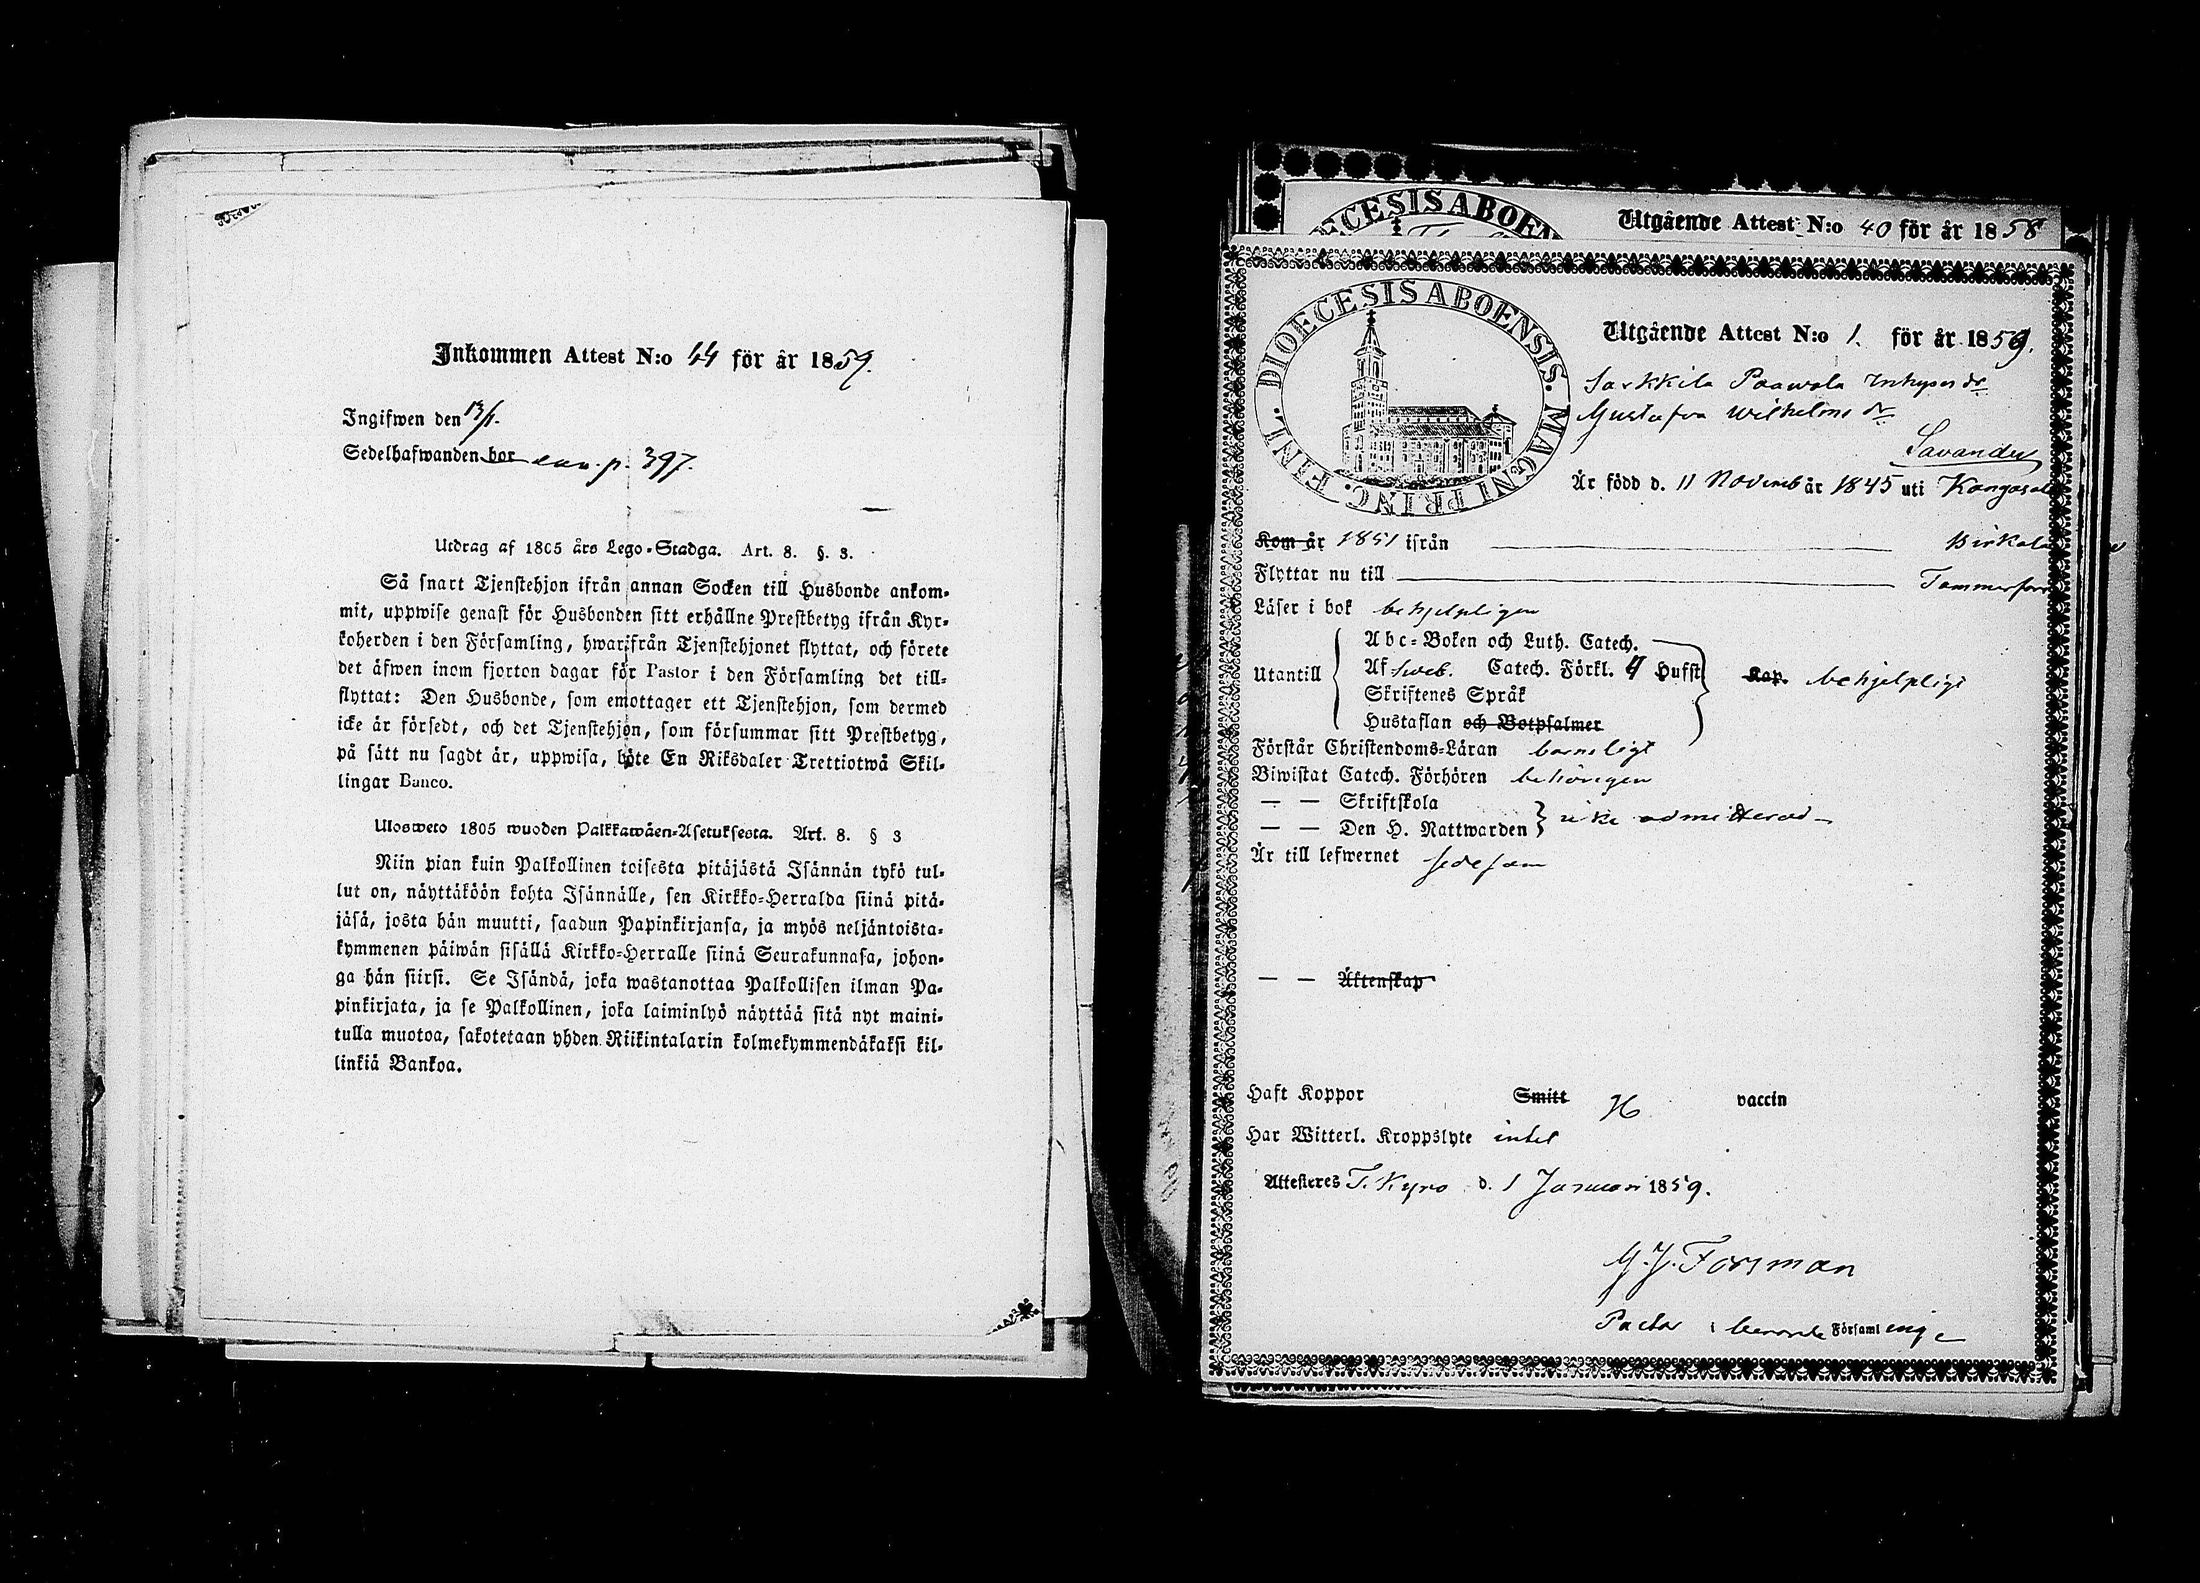 Inkommen Attest N:o 44 för år 1859.
Ingifwen den 13/1.
Sedelhafwanden bor p. 397.
Utdrag af 1805 års Lego-Stadga. Art. 8. §. 3.
Så snart Tjenstehjon ifrån annan Socken till Husbonde ankom-
mit, uppwise genast för Husbonden sitt erhållne Prestbetyg ifrån Kyr-
koherden i den Församling, hwarifrån Tjenstehjonet flyttat, och förete
det äfwen inom fjorton dagar för Pastor i den Församling det till-
flyttat: Den Husbonde, som emottager ett Tjenstehjon, som dermed
icke är försedt, och det Tjenstehjon, som försummar sitt Prestbetyg,
på sätt nu sagdt är, uppwisa, böte En Riksdaler Trettiotwå Skil-
lingar Banco.
Ulosweto 1805 wuoden Palkkawäen-Asetuksesta. Art. 8. § 3
Niin pian kuin Palkollinen toisesta pitäjästä Isännän tykö tul-
lut on, näyttäköön kohta Isännälle, sen Kirkko-Herralda siinä pitä-
jäsä, josta hän muutti, saadun Papinkirjansa, ja myös neljäntoista-
kymmenen päiwän sisällä Kirkko-Herralle siinä Seurakunnasa, johon-
ga hän siirsi. Se Isändä, joka wastanottaa Palkollisen ilman Pa-
pinkirjata, ja se Palkollinen, joka laiminlyö näyttää sitä nyt maini-
tulla muotoa, sakotetaan yhden Riikintalarin kolmekymmendäkaksi kil-
linkiä Bankoa.
DIOECESIS ABOEN
Utgående Attest N:o 40 för år 1858
DIOECESIS ABOENSIS. MAGNI PRINC. FINL.
Utgående Attest N:o 1. för år 1859.
Sarkkila Paawola Inhyses dr
Gustafva Wilhelms dr
Savander
Är född d. 11 Novemb år 1845 uti Kangasala
Kom år 1851 ifrån Birkala
Flyttar nu till Tammerfors
Läser i bok behjelpligen
Abc-Boken och Luth. Catech.
Utantill Af Sweb. Catech. Förkl. 4 Hufst Kap. behjelpligt
Skriftenes Språk
Hustaflan och Botpsalmer
Förstår Christendoms-Läran barnsligt
Biwistat Catech. Förhören behörigen
— — Skriftskola
— — Den H. Nattwarden icke admitterad
Är till lefwernet sedesam
— — Äktenskap
Haft Koppor Smitt vaccin
Har Witterl. Kroppslyte intet
Attesteres T. Kyro d. 1 Januari 1859.
G. J. Forsman
Pastor i berörde Församl inge